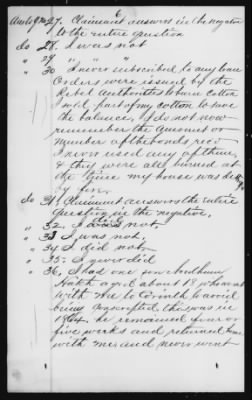 E
Ans to No 27. Claimant answers in the negative
to the entire question
do 28. I was not
" 29 " " "
" 30 I never subscribed to any loan
Orders were issued by the
Rebel Authorities to burn cotton
I sold part of my cotton to save
the balance, I do not now
remember the amount or
number of the bonds recd
I never used any of them,
& they were all burned at
the time my house was destroyed
by fire.
do 31. Claimant answers the entire
question in the negative,
" 32. I did not
" 33 I was not,
" 34 I did not,
" 35. I never did
" 36, I had one son
aged about 18 who went
with me to Corinth to avoid
being conscripted, this was in
1864, he remained four or
five weeks and returned home
with me and never went